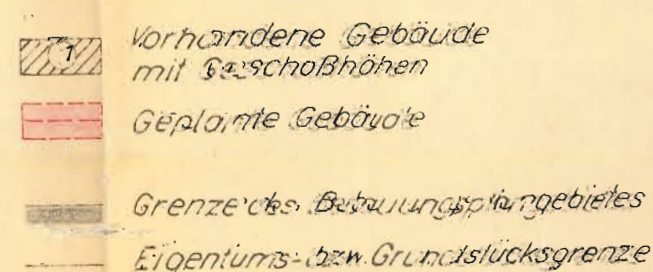 1 Vorhandene Gebäude
mit Geschoßhöhen
Geplante Gebäude
Grenze des Bebauungsplangebietes
Eigentums- bzw. Grundstücksgrenze